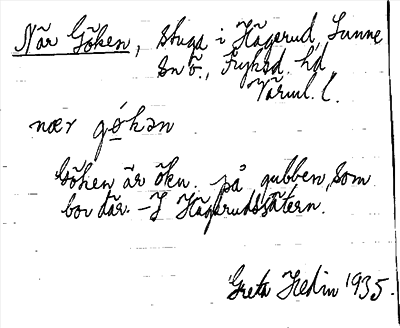 När Göken, stuga i Hågerud, Sunne
sn ö., Fryksd. hd,
Värml. l.
nær gó̱kən
Göken är ökn. på gubben, som
bor där. – I Hågerudssätern.
Greta Hedin 1935.